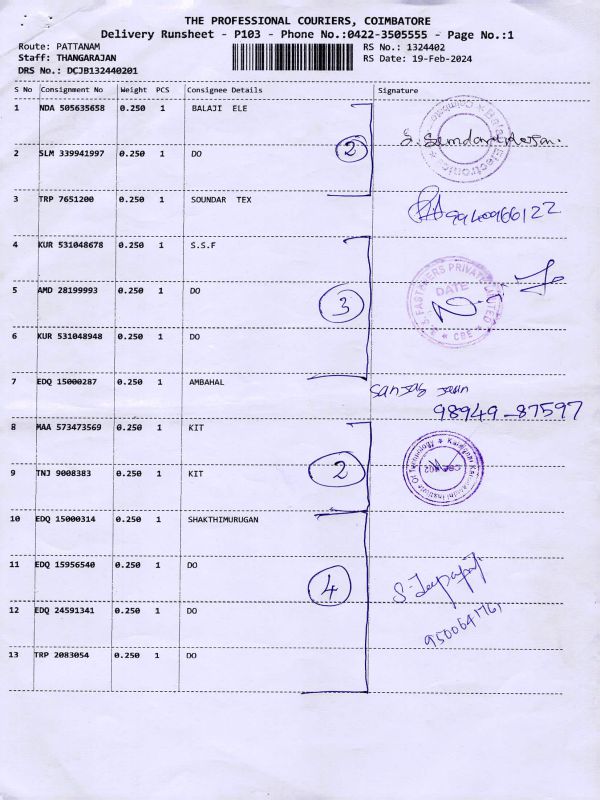 THE PROFESSIONAL COURIERS, COIMBATORE
Delivery Runsheet - P103 - Phone No.:0422-3505555 - Page No.:1
Route: PATTANAM RS No.: 1324402
Staff: THANGARAJAN RS Date: 19-Feb-2024
DRS No.: DCJB132440201
S No Consignment No Weight PCS Consignee Details Signature
1 NDA 505635658 0.250 1 BALAJI ELE
2 SLM 339941997 0.250 1 DO
2
3 TRP 7651200 0.250 1 SOUNDAR TEX 9940966122
4 KUR 531048678 0.250 1 S.S.F
5 AMD 28199993 0.250 1 DO
3
FASTENERS PRIVATE LIMITED
DATE
CBE
6 KUR 531048948 0.250 1 DO
7 EDQ 15000287 0.250 1 AMBAHAL
98949-87597
8 MAA 573473569 0.250 1 KIT
9 TNJ 9008383 0.250 1 KIT
2
Institute Of Technology
10 EDQ 15000314 0.250 1 SHAKTHIMURUGAN
11 EDQ 15956540 0.250 1 DO
4
12 EDQ 24591341 0.250 1 DO
13 TRP 2083054 0.250 1 DO